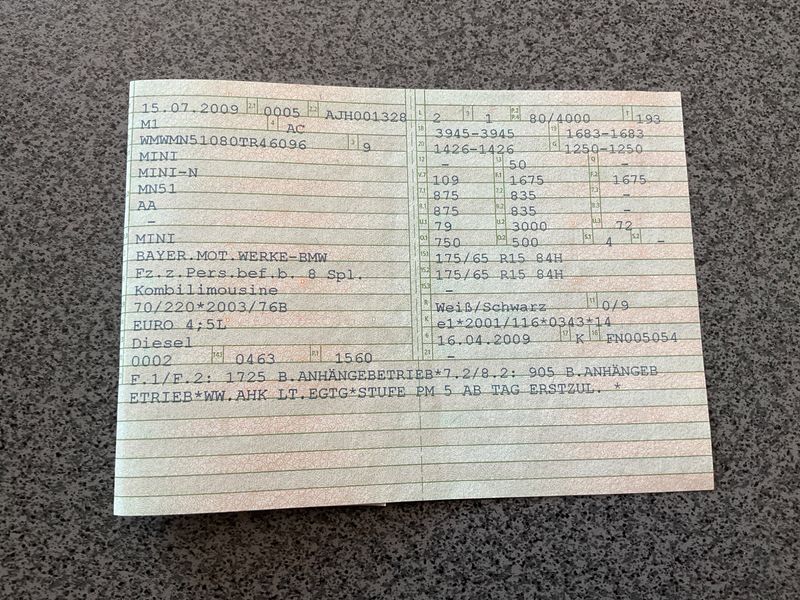 15.07.2009 2.1 0005 2.2 AJH001328
M1 4 AC
WMWMN51080TR46096 3 9
MINI
MINI-N
MN51
AA
-
MINI
BAYER.MOT.WERKE-BMW
Fz.z.Pers.bef.b. 8 Spl.
Kombilimousine
70/220*2003/76B
EURO 4;5L
Diesel
0002 14.1 0463 P.1 1560
L 2 9 1 P.2 P.4 80/4000 T 193
18 3945-3945 19 1683-1683
20 1426-1426 G 1250-1250
12 - 13 50 Q -
V.7 109 F.1 1675 F.2 1675
7.1 875 7.2 835 7.3 -
8.1 875 8.2 835 8.3 -
U.1 79 U.2 3000 U.3 72
O.1 750 O.2 500 S.1 4 S.2 -
15.1 175/65 R15 84H
15.2 175/65 R15 84H
15.3 -
R Weiß/Schwarz 11 0/9
K e1*2001/116*0343*14
6 16.04.2009 17 K 16 FN005054
21 -
F.1/F.2: 1725 B.ANHÄNGEBETRIEB*7.2/8.2: 905 B.ANHÄNGEB
ETRIEB*WW.AHK LT.EGTG*STUFE PM 5 AB TAG ERSTZUL. *